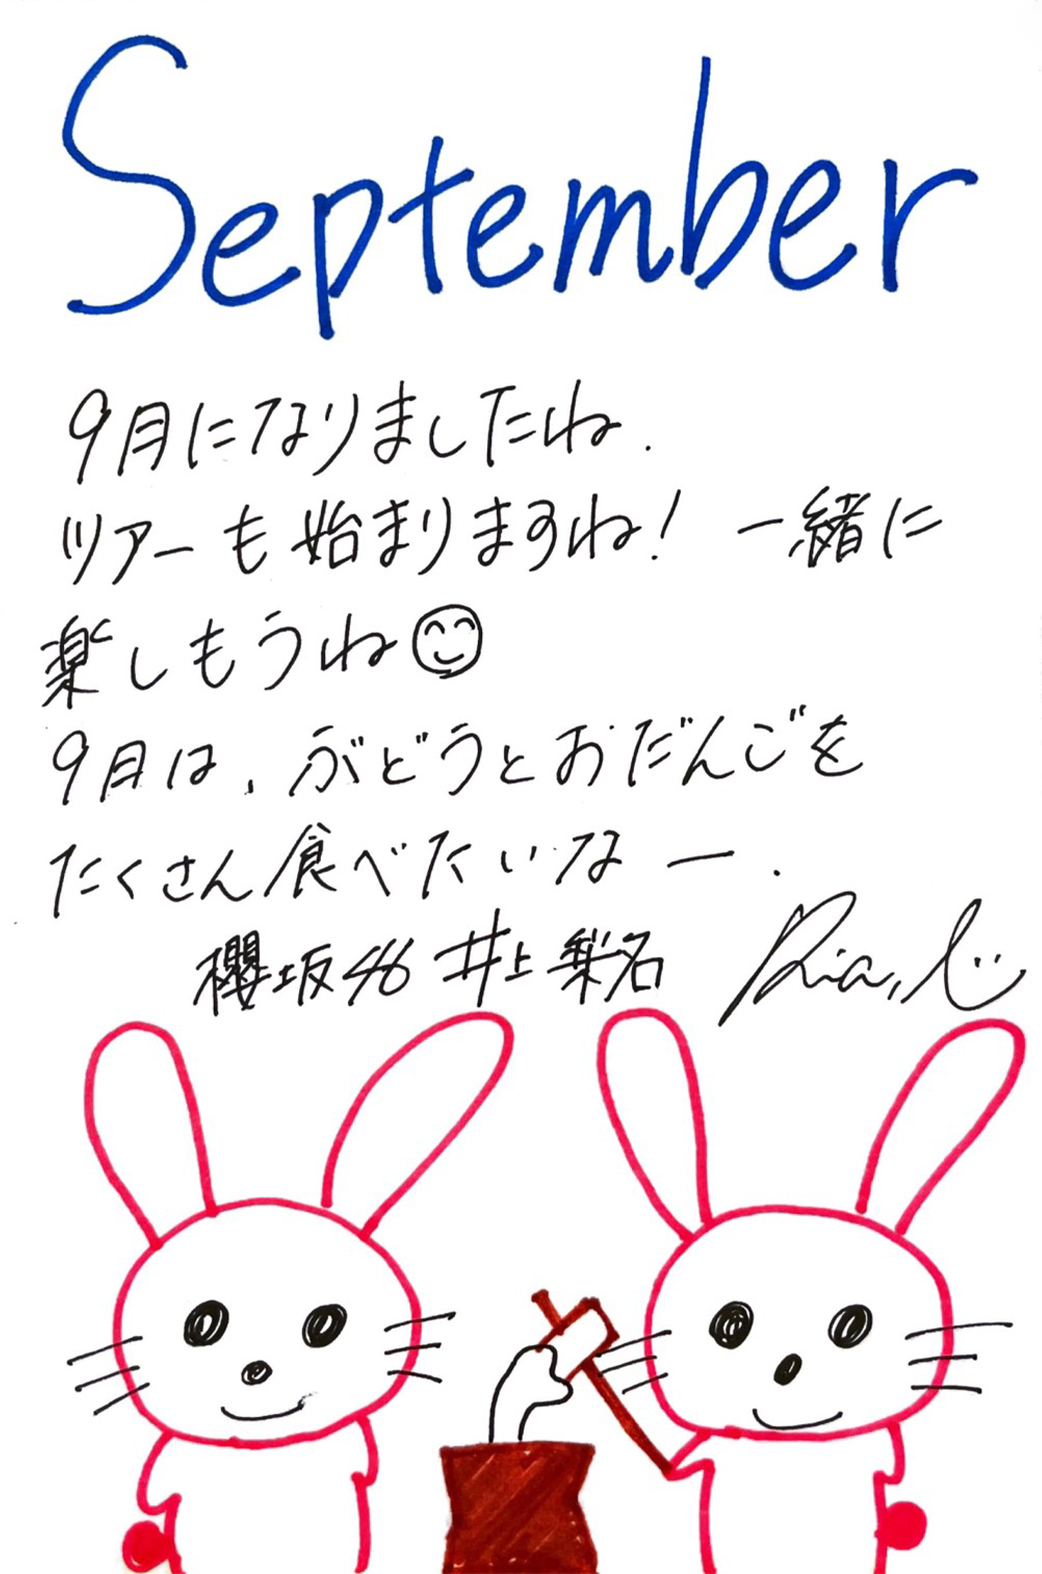 September
9月になりましたね.
ツアーも始まりますね! 一緒に
楽しもうね
9月は、ぶどうとおだんごを
たくさん食べたいなー.
櫻坂46 井上梨名 Rina.I